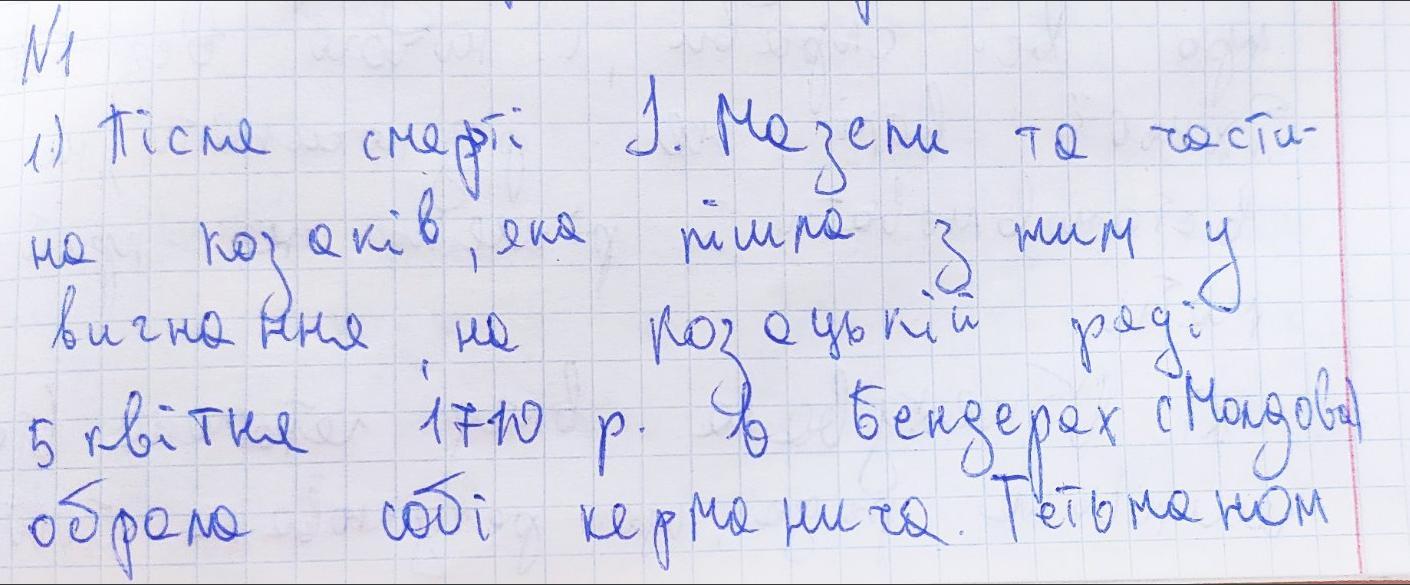 №1
1.) Після смерті І. Мазепи та части-
на козаків, яка пішла з ним у
вигнання, на козацькій раді
5 квітня 1710 р. в Бендерах (Молдова)
обрала собі керманича. Гетьманом